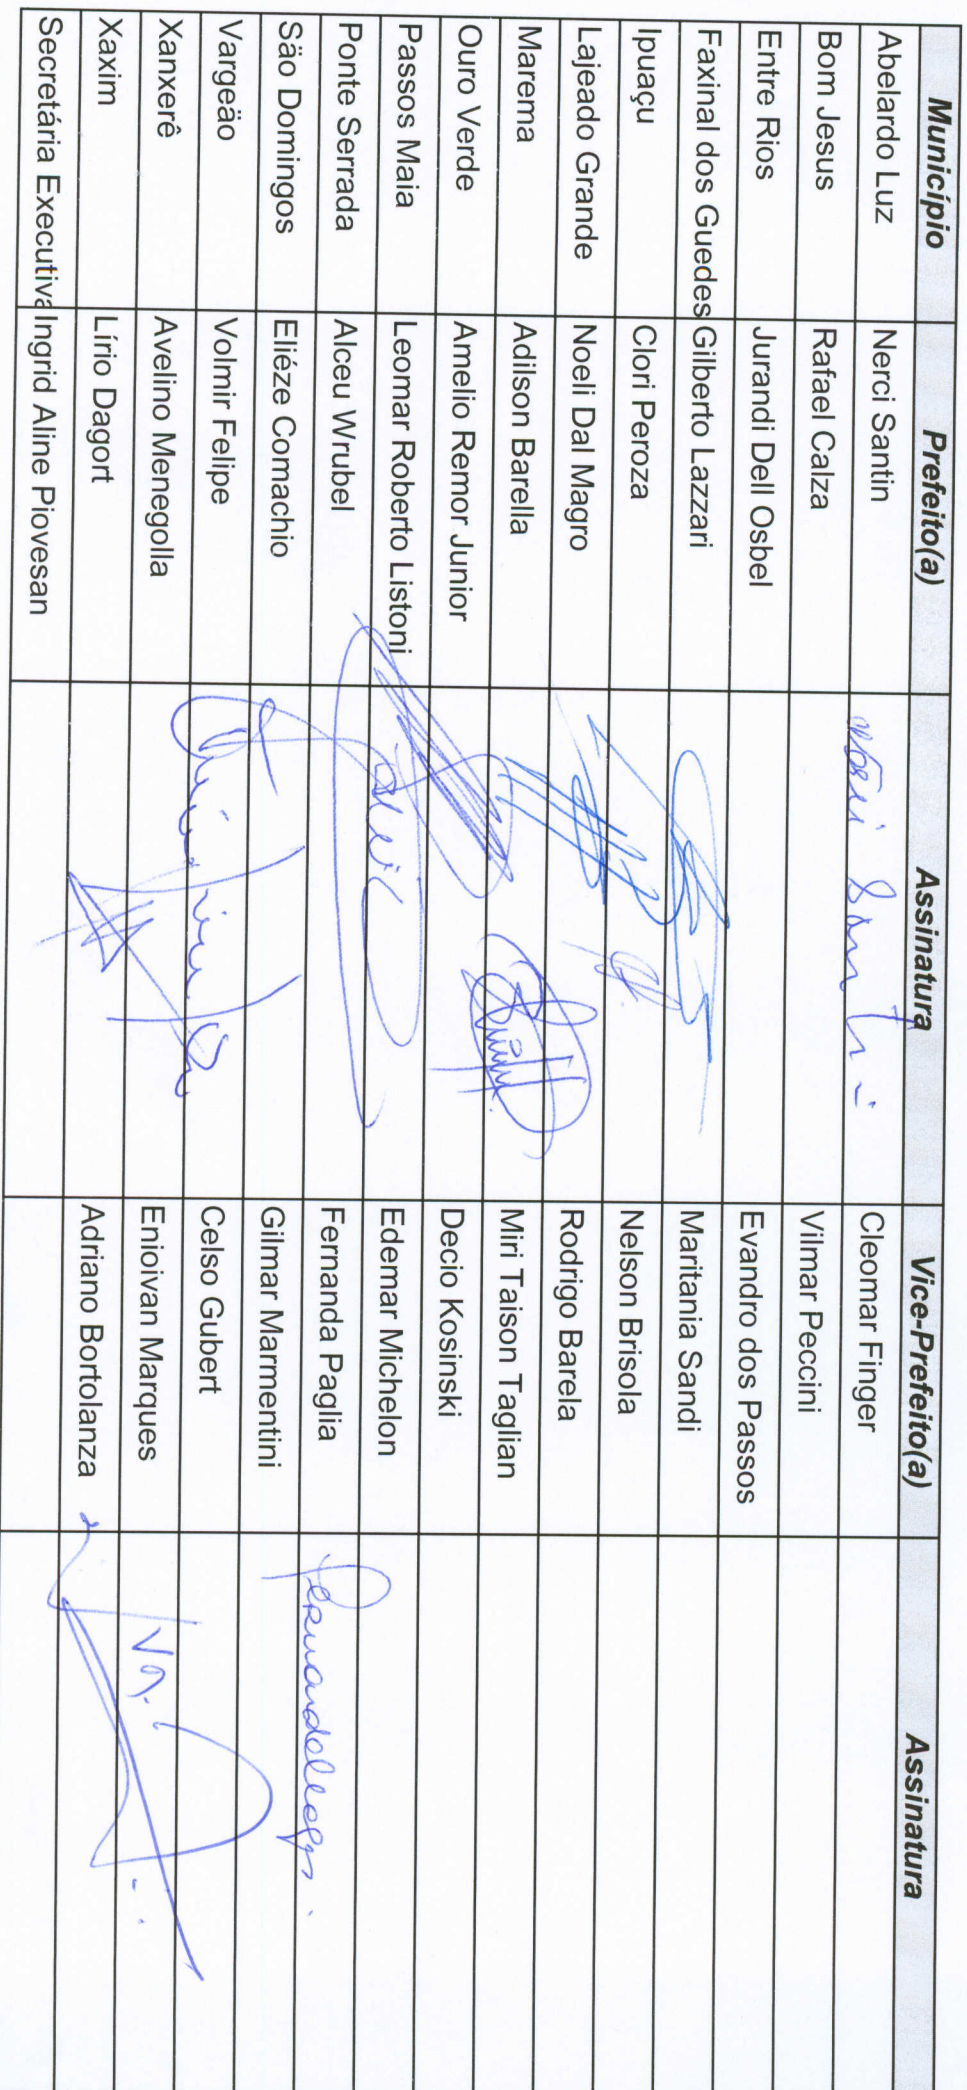 Município Prefeito(a) Assinatura Vice-Prefeito(a) Assinatura
Abelardo Luz Nerci Santin Nerci Santin Cleomar Finger
Bom Jesus Rafael Calza Vilmar Peccini
Entre Rios Jurandi Dell Osbel Evandro dos Passos
Faxinal dos Guedes Gilberto Lazzari Maritania Sandi
Ipuaçu Clori Peroza Nelson Brisola
Lajeado Grande Noeli Dal Magro Rodrigo Barela
Marema Adilson Barella Miri Taison Taglian
Ouro Verde Amelio Remor Junior Decio Kosinski
Passos Maia Leomar Roberto Listoni Edemar Michelon
Ponte Serrada Alceu Wrubel Fernanda Paglia
São Domingos Eliéze Comachio Gilmar Marmentini
Vargeão Volmir Felipe Celso Gubert
Xanxerê Avelino Menegolla Enioivan Marques
Xaxim Lírio Dagort Adriano Bortolanza
Secretária Executiva Ingrid Aline Piovesan